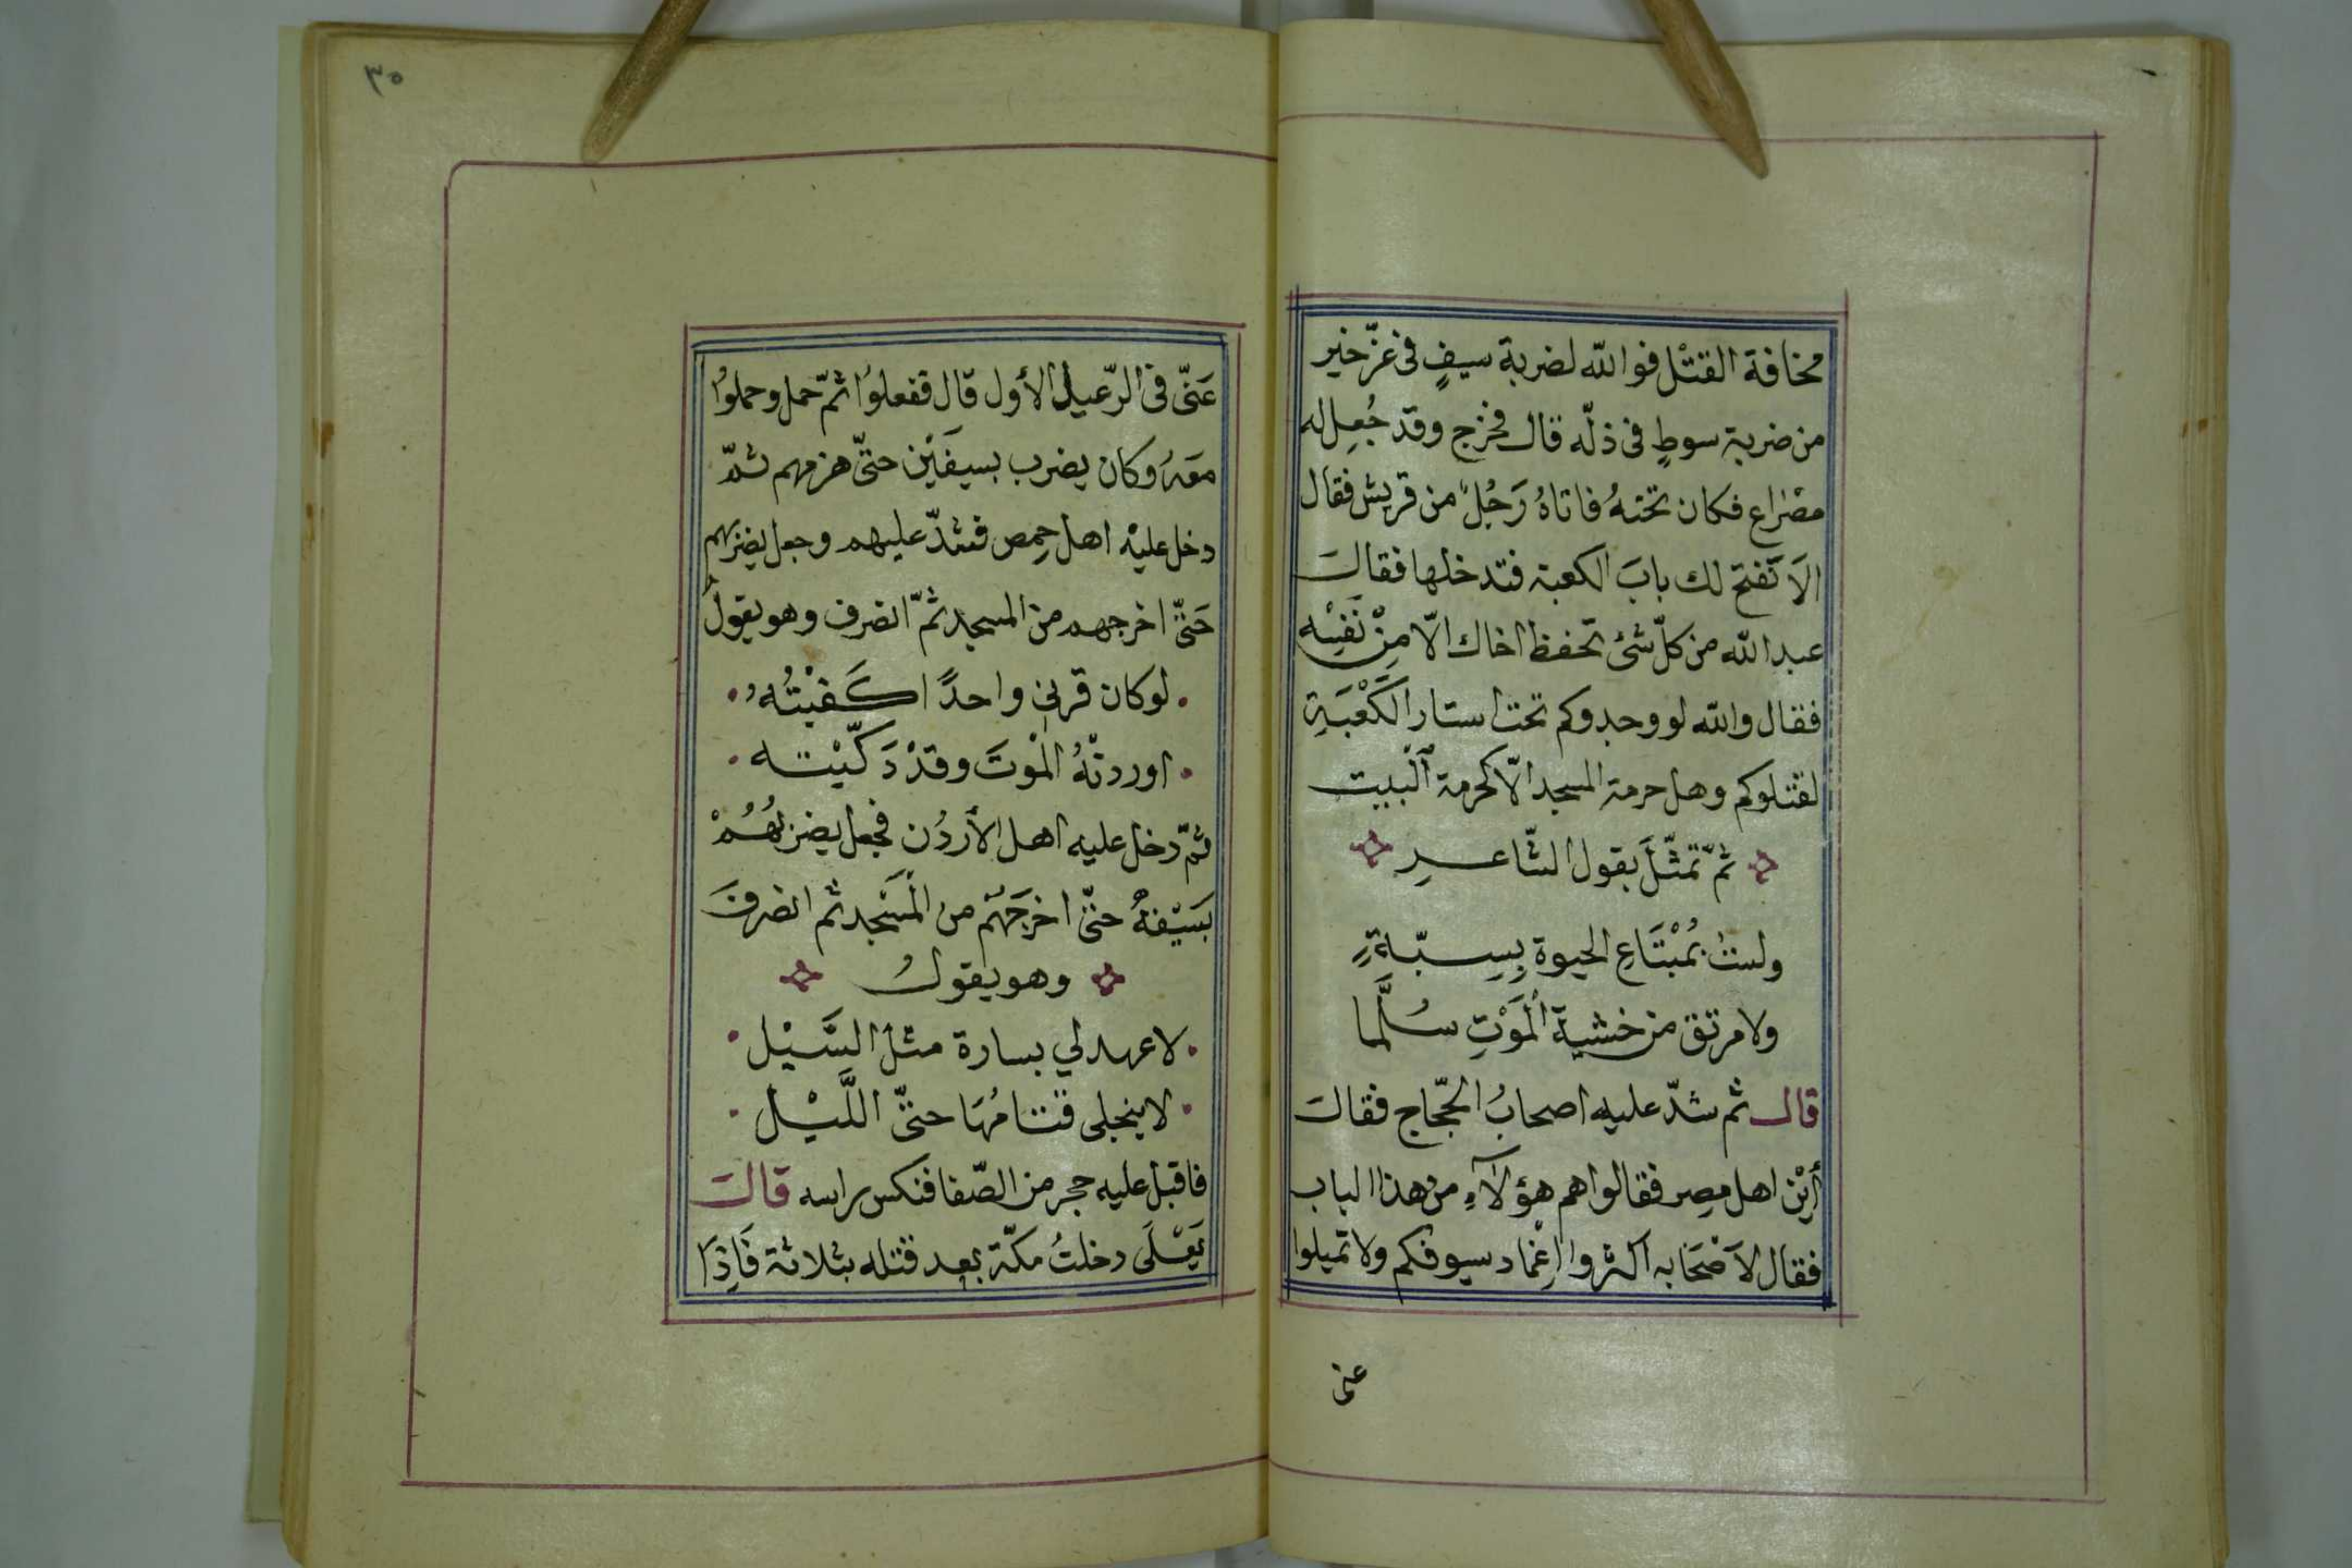 مخافة القتْل فوالله لضربة سيفٍ فى عزّ خير
من ضربة سوطٍ فى ذلّه قال فخرج وقد جُعِل له
مصْراع فكان تحتهُ فاتاهُ رَجُلٌ من قريش فقال
الَا تَفتح لك بابَ الكعبة فتدخلها فقالَ
عبدالله من كلّ شئ تحفظ اخاك الّا مِنْ نَفْسِه
فقال والله لو وجدوكم تحت استار الكَعْبَةِ
لقتلوكم وهل حرمة المسجد الّا كحرمة اَلْبيت
ثمّ تمثّلَ بقول الشّاعرِ
ولستُ بمُبْتَاعِ الحيوة بِسِبّةٍ
ولا مرتق من خشية اْلمَوْتِ سُلَّما
قال ثم شدّ عليه اصحابُ الحجّاج فقال
أَيْن اهل مصر فقالوا هم هؤلآءِ من هذا الباب
فقال لاَصْحَابه اكثروا اِغْماد سيوفكم ولا تميلوا
عنى
٣٥
عَنّى فى الرّعيل الأول قال ففعلوُا ثمّ حمل وحملوُا
معَهُ وكان يضرب بسيفَيْن حتّى هزمهم ثمّ
دخل عليْه اهل حِمص فشدّ عليهم وجعل يضربهم
حَتّى اخرجهم من المسجد ثمّ انصرف وهو يقولُ
لوكان قرنى واحدًا اكَفيْتُهُ
اوردتْهُ المْوتَ وقدْ دَكّيْته
ثمّ دخل عليه اهل الأَردُن فجعل يضربهُمْ
بَسيْفهُ حتّى اخرجَهُم من المَسْجد ثم انصرفَ
وهو يقولُ
لا عهد لي بسارة مثل السَّيْل
لا ينجلى قتامُهَا حتىّ اللَّيْل
فاقبل عليه حجر من الصّفا فنكس راسه قالَ
يَعْلَى دخلتُ مكّة بعد قتله بثلاثة فَاِذَا